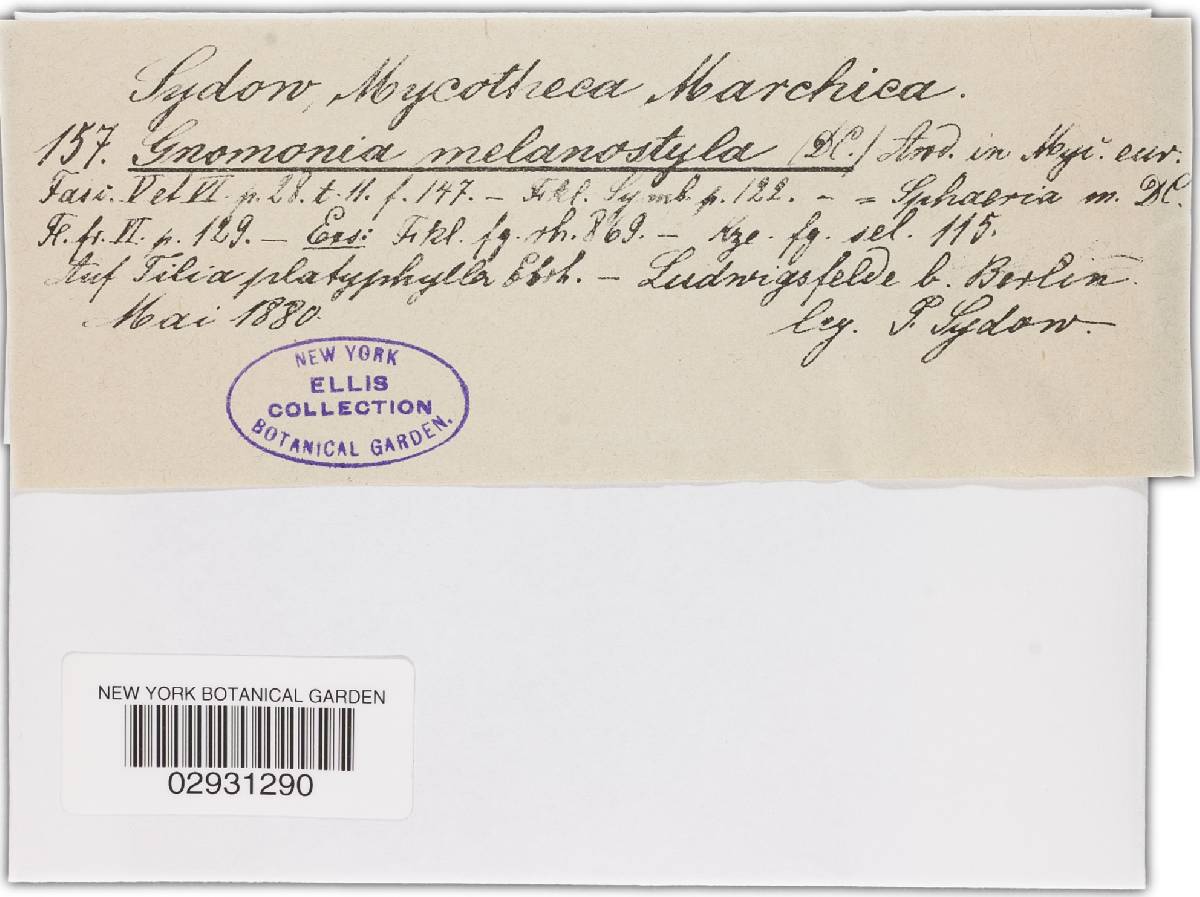 Sydow, Mycotheca Marchica.
157. Gnomonia melanostyla (DC.) Awd. in Myc. eur.
Fasc. V et VI. p. 28. t. 11. f. 147. — Fckl. Symb. p. 122. - = Sphaeria m. DC.
Fl. fr. VI. p. 129. — Exs: Fckl. fg. rh. 869. — Kze. fg. sel. 115.
Auf Tilia platyphylla Ehrh. — Ludwigsfelde b. Berlin.
Mai 1880. leg. P. Sydow.
NEW YORK
ELLIS
COLLECTION
BOTANICAL GARDEN.
NEW YORK BOTANICAL GARDEN
02931290